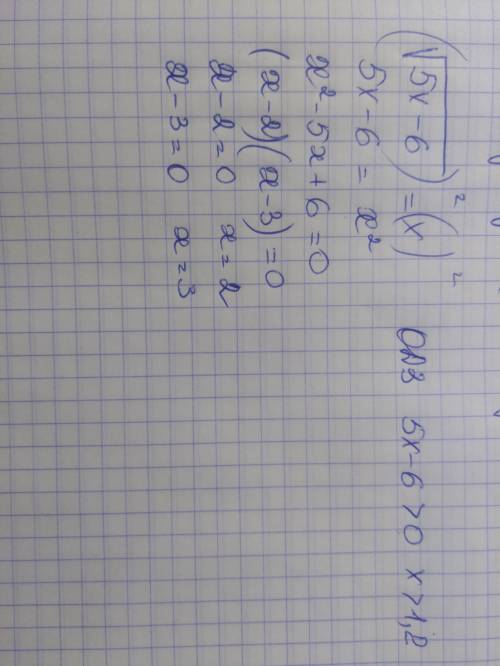 (√5x-6)² = (x)² ОДЗ 5x-6>0 x>1,2
5x-6 = x²
x²-5x+6=0
(x-2)(x-3)=0
x-2=0 x=2
x-3=0 x=3